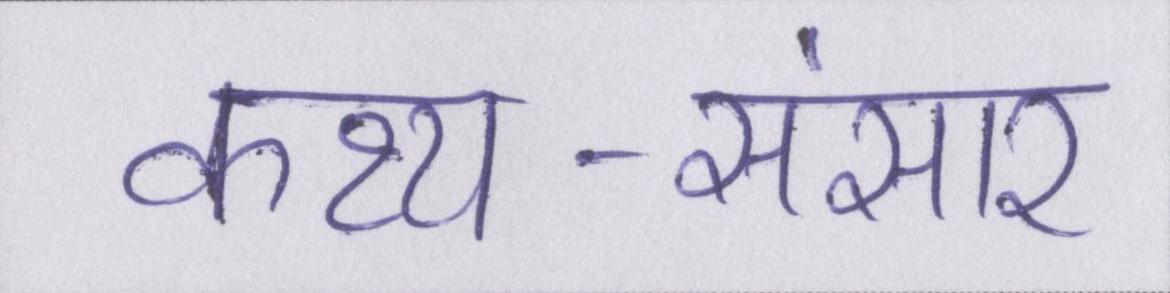 कथ्य-संसार